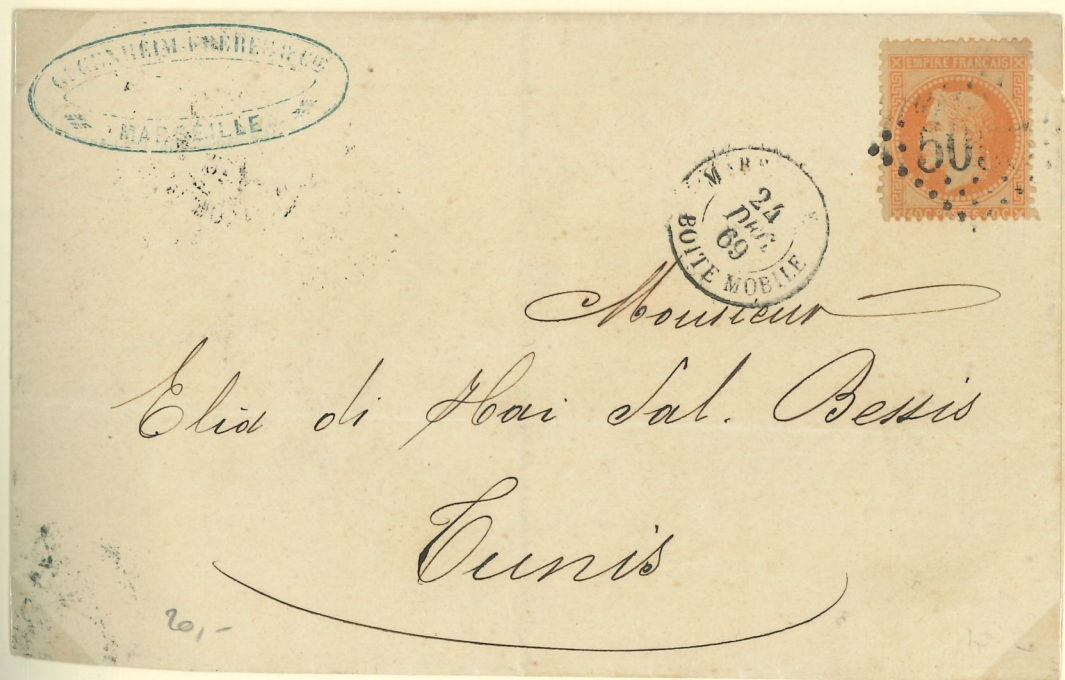 GGENHEIM FRÈRES & CIE
MARSEILLE
EMPIRE FRANÇAIS
50
MARS
24
DEC.
69
BOITE MOBILE
Monsieur
Elia di Hai Sal. Bessis
Tunis
20,-